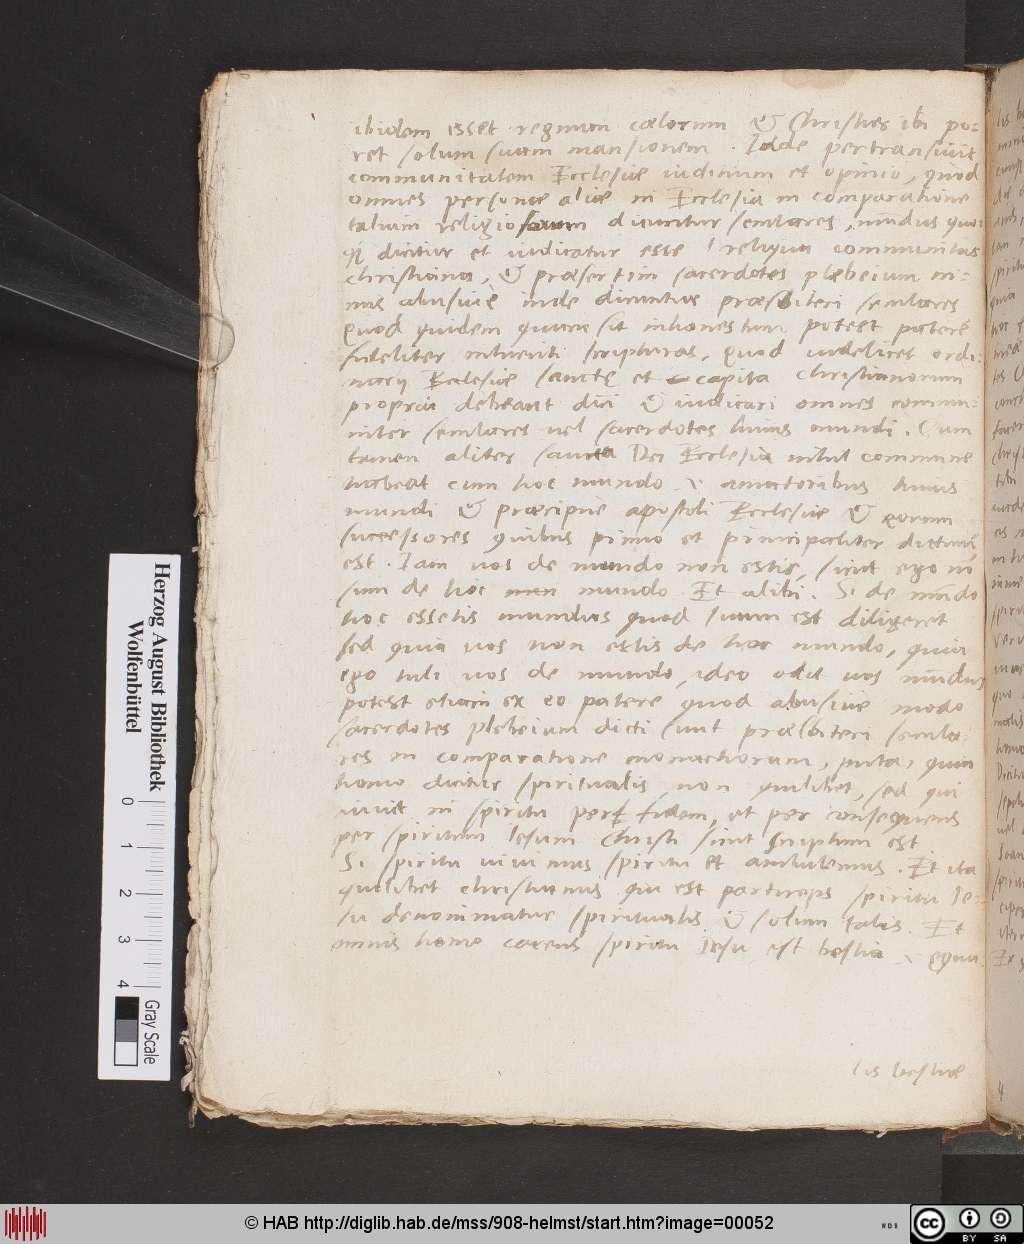 ibidem esset regnum cœlorum & Christus ibi po-
ret solum suam mansionem. Inde pertransiuit
communitatem Ecclesiæ iudicium et opinio, quod
omnes personæ aliæ in Ecclesia in comparatione
talium religiosorum dicuntur seculares, mũdus quoq
dicitur et iudicatur esse reliqua communitas
christiana, & præsertim sacerdotes plebeium mi-
nus abusiuè inde dicuntur præsbiteri seculares
Quod quidem quam sit inhonestum potest patere
fideliter intuenti scripturas, Quod uidelicet ordi-
narij Ecclesiæ sanctę et capita christianorum
propria debeant dici & iudicari omnes commu-
niter seculares uel sacerdotes huius mundi. Cum
tamen aliter sancta Dei Ecclesia nihil commune
habeat cum hoc mundo & amatoribus huius
mundi & præcipuè apostoli Ecclesiæ & eorum
successores quibus primo et principaliter dictum
est. Iam uos de mundo non estis, sicut ego nõ
sum de hoc mundo. Et alibi. Si de mũdo
hoc essetis mundus quod suum est diligeret
sed quia uos non estis de hoc mundo, quia
ego tuli uos de mundo, ideo odit uos mũdus
potest etiam ex eo patere quod abusiue modo
sacerdotes plebeium dicti sunt præsbiteri secula-
res in comparatione monachorum, nuta, quia
homo dicitur spiritualis non quilibet, sed qui
uiuit in spiritu per fidem, et per consequens
per spiritum Iesum Christi sicut scriptum est
Si spiritu uiuimus spiritu et ambulemus. Et ita
quilibet christianus qui est particeps spiritu Ie-
su denominatur spiritualis & solum talis. Et
omnis homo carens spiritu Iesu est bestia &
lis bestiæ
Herzog August Bibliothek
Wolfenbüttel
0 1 2 3 4
Gray Scale
© HAB http://diglib.hab.de/mss/908-helmst/start.htm?image=00052
WDB
cc BY SA